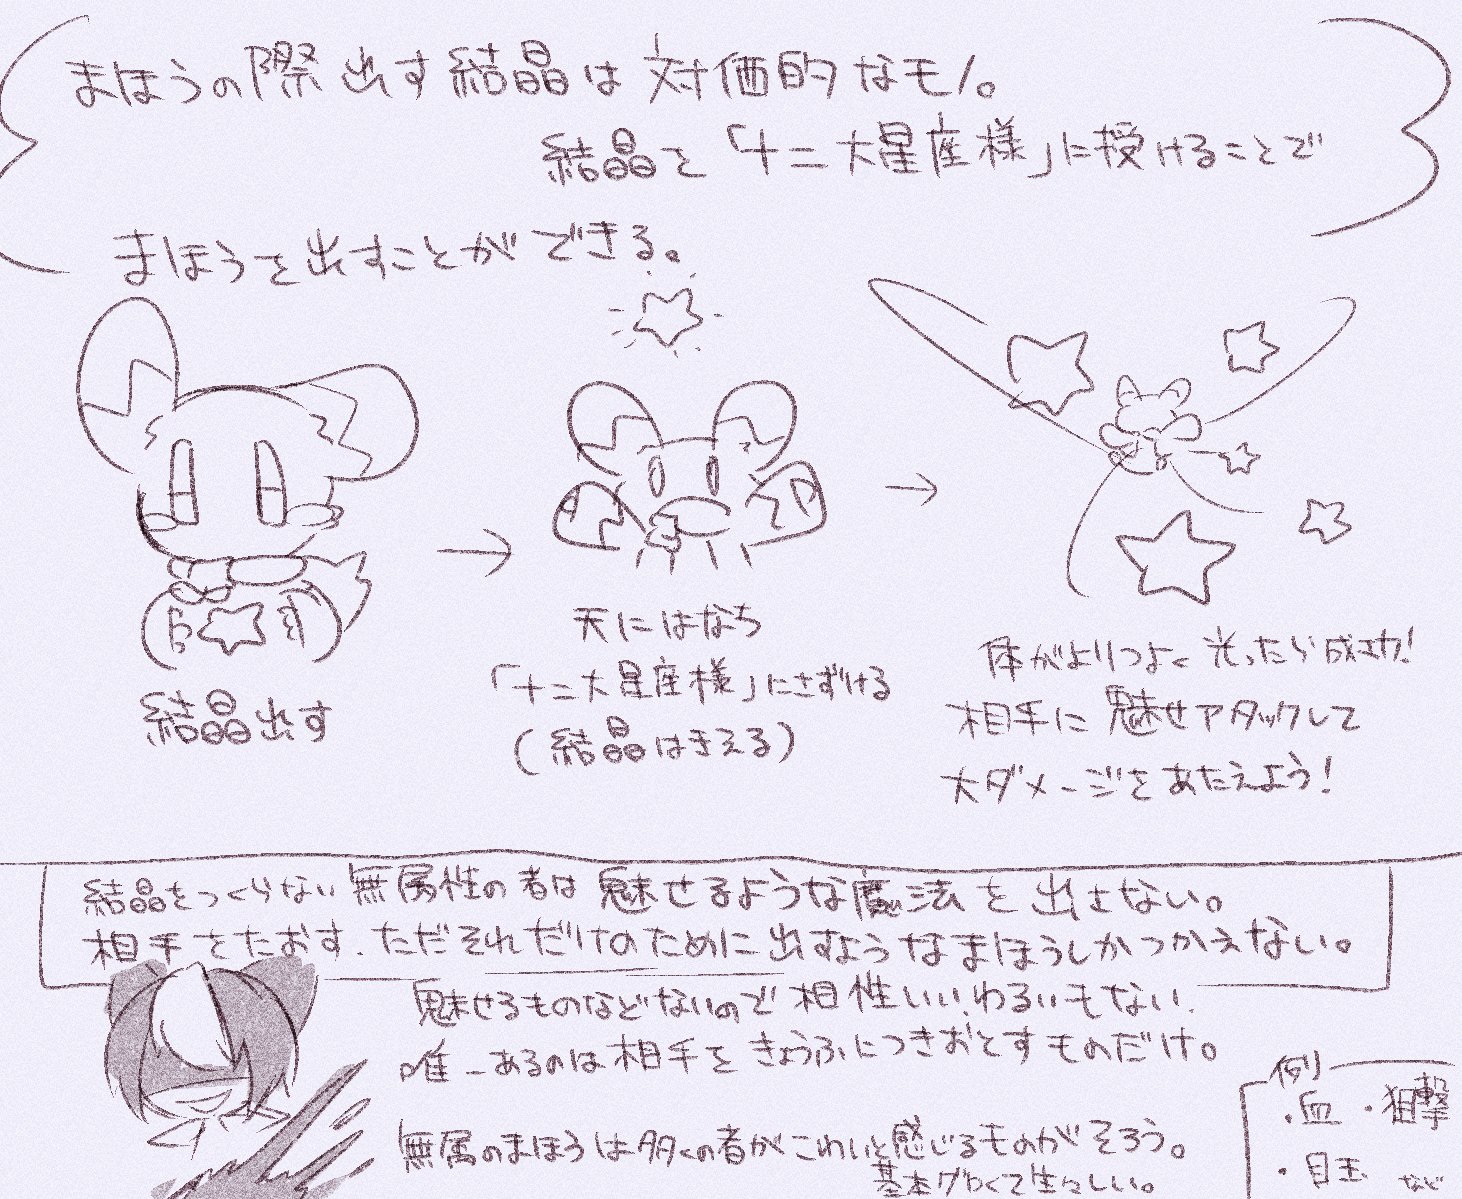 まほうの際出す結晶は対価的なモノ。
結晶を「十二大星座様」に授けることで
まほうを出すことができる。
結晶出す
天にはなち
「十二大星座様」にさずける
(結晶はきえる)
体がよりつよく光ったら成功!
相手に魅せアタックして
大ダメージをあたえよう!
結晶をつくらない無属性の者は魅せるような魔法を出さない。
相手をたおす.ただそれだけのために出すようなまほうしかつかえない。
魅せるものなどないので相性いい!わるいもない.
唯一あるのは相手をきょうふにつきおとすものだけ。
無属のまほうは多くの者がこわいと感じるものがそろう。
基本グロくて生々しい。
例
・血 ・狙撃
・目玉 など